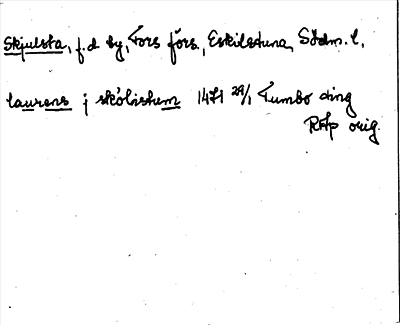 Skjulsta, f.d. by, Fors förs., Eskilstuna, Södm. l.
laurens j skólistum 1471 29/1 Tumbo ding
RAp orig.